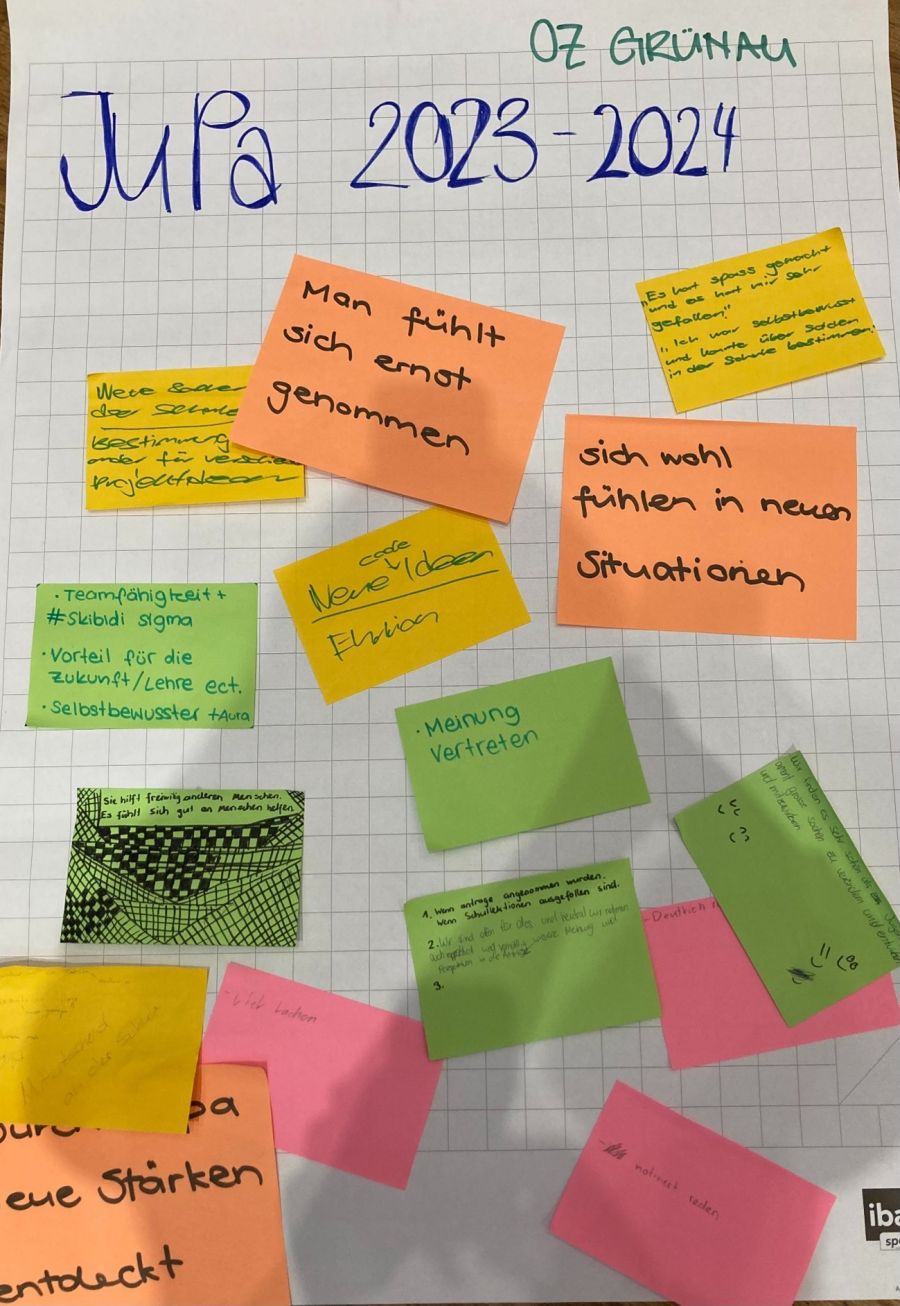 OZ GRÜNAU
JuPa 2023-2024
Man fühlt
sich ernst
genommen
"Es hat spass gemacht
und es hat mir sehr
gefallen"
"Ich war selbstbewusst
und konnte über Sachen
in der Schule bestimmen."
der Schule
bestimmung
oder für
Projektideen
sich wohl
fühlen in neuen
Situationen
coole
Neue Ideen
· Teamfähigkeit +
#Skibidi sigma
· Vorteil für die
Zukunft/Lehre ect.
· Selbstbewusster +Aura
· Meinung
Vertreten
Sie hilft freiwilig anderen Menschen.
Es fühlt sich gut an Menschen helfen
1. Wenn anträge angenommen wurden.
Wenn Schullektionen ausgefallen sind.
2. Wir sind offen für alles und neutral wir nehmen
unsere Meinung und
3.
Wir finden es sehr schön als
grosse sachen zu verändern und
und mitzuerleben
- Deutlich
- Viel lachen
an der
Pa
eue Stärken
entdeckt
- reden
iba